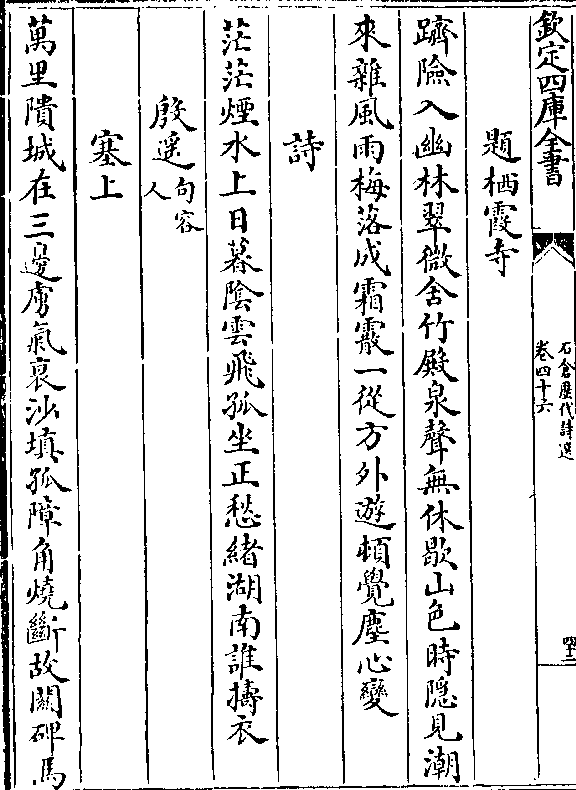 欽定四庫全書
石倉歷代詩選
卷四十六
題栖霞寺
躋險入幽林翠微含竹殿泉聲無休歇山色時隱見潮
來雜風雨梅落成霜霰一從方外遊頓覺塵心變
詩
茫茫煙水上日暮陰雲飛孤坐正愁緒湖南誰擣衣
殷遥句容人
塞上
萬里隤城在三邊虜氣衰沙填孤障角燒斷故關碑馬